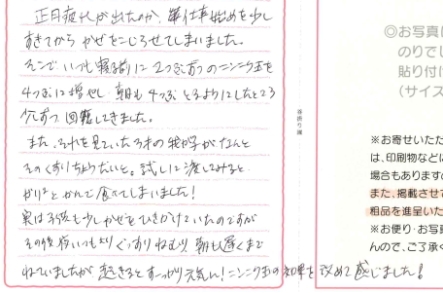 正月疲れが出たのか、仕事始めを少し
すぎてから かぜをこじらせてしまいました。
そこで いつも寝る前に2つぶずつのニンニク玉を
4つぶに増やし 朝も4つぶ とるようにしたところ
少しずつ 回復してきました。
また、それを見ていた3才の我が子がなんと
そのくすりちょうだいと。試しに渡してみると
がりぼとかんで食べてしまいました!
実は子供も少しかぜをひきかけていたのですが
その後 いつもよりぐっすりねむり 朝も遅くまで
ねていましたが 起きるとすっかり元気に!ニンニク玉の効果を改めて感じました!
谷折り線
◎お写真は
のりでし
貼り付け
(サイズ
※お寄せいただ
は、印刷物など
場合もあります
また、掲載させて
粗品を進呈いた
※お便り・お写真
んので、ご了承く